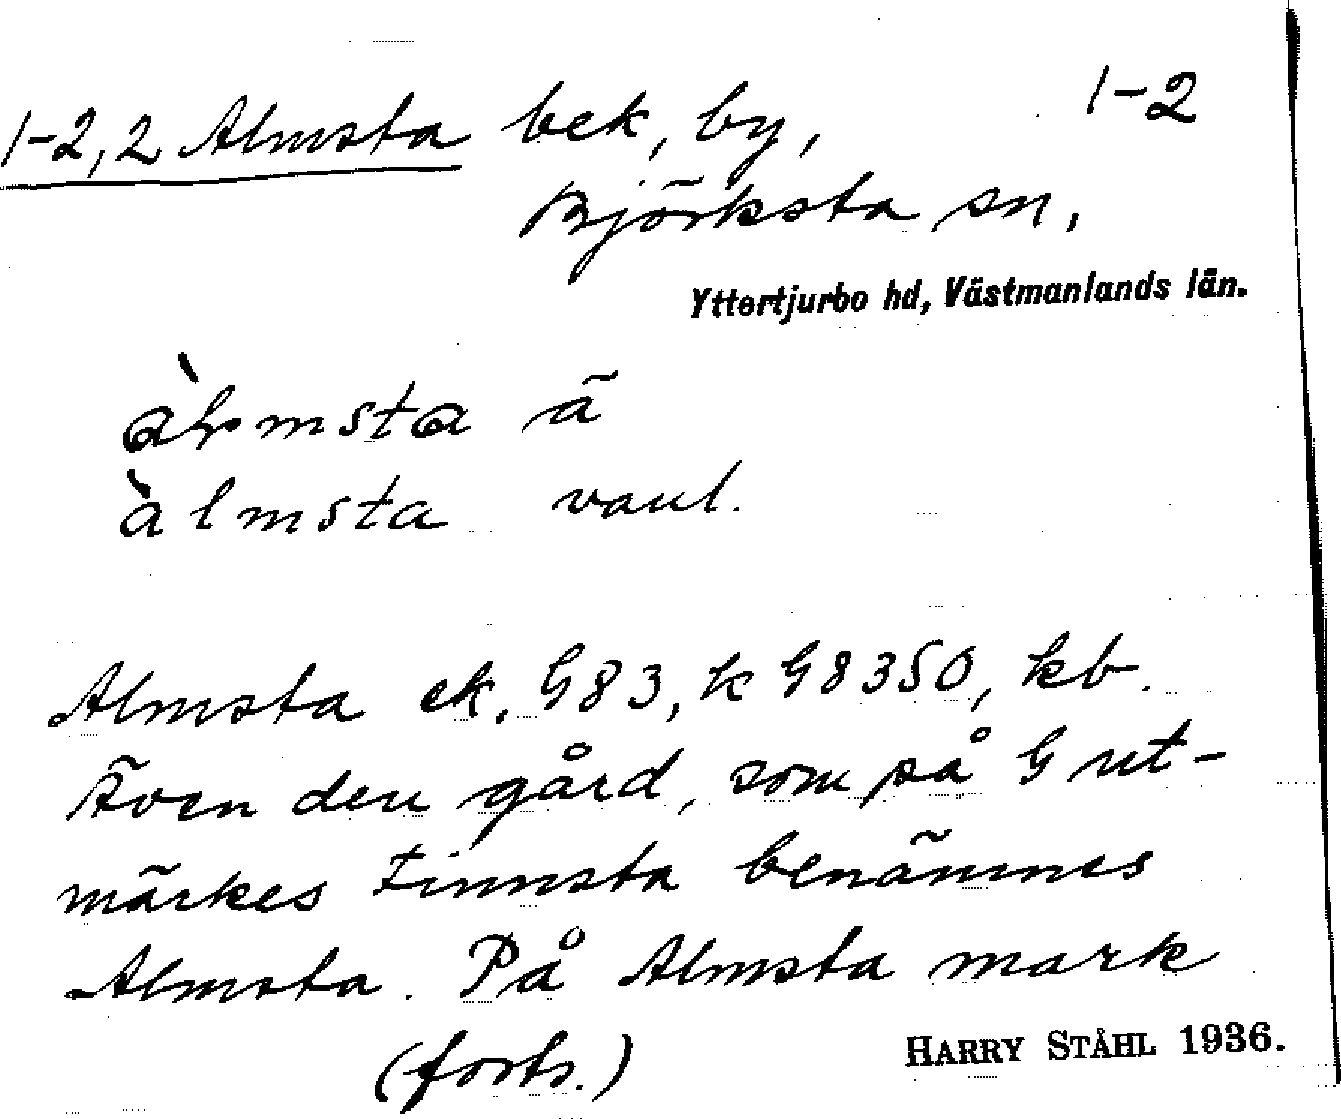 1-2, 2 Almsta bek, by, 1-2
Björksta sn,
Yttertjurbo hd, Västmanlands län.
àlmsta ä
àlmsta vanl.
Almsta ek. G83, k G8350, kb.
Även den gård, som på G ut-
märkes Finnsta benämnes
Almsta. På Almsta mark
(forts.)
HARRY STÅHL 1936.